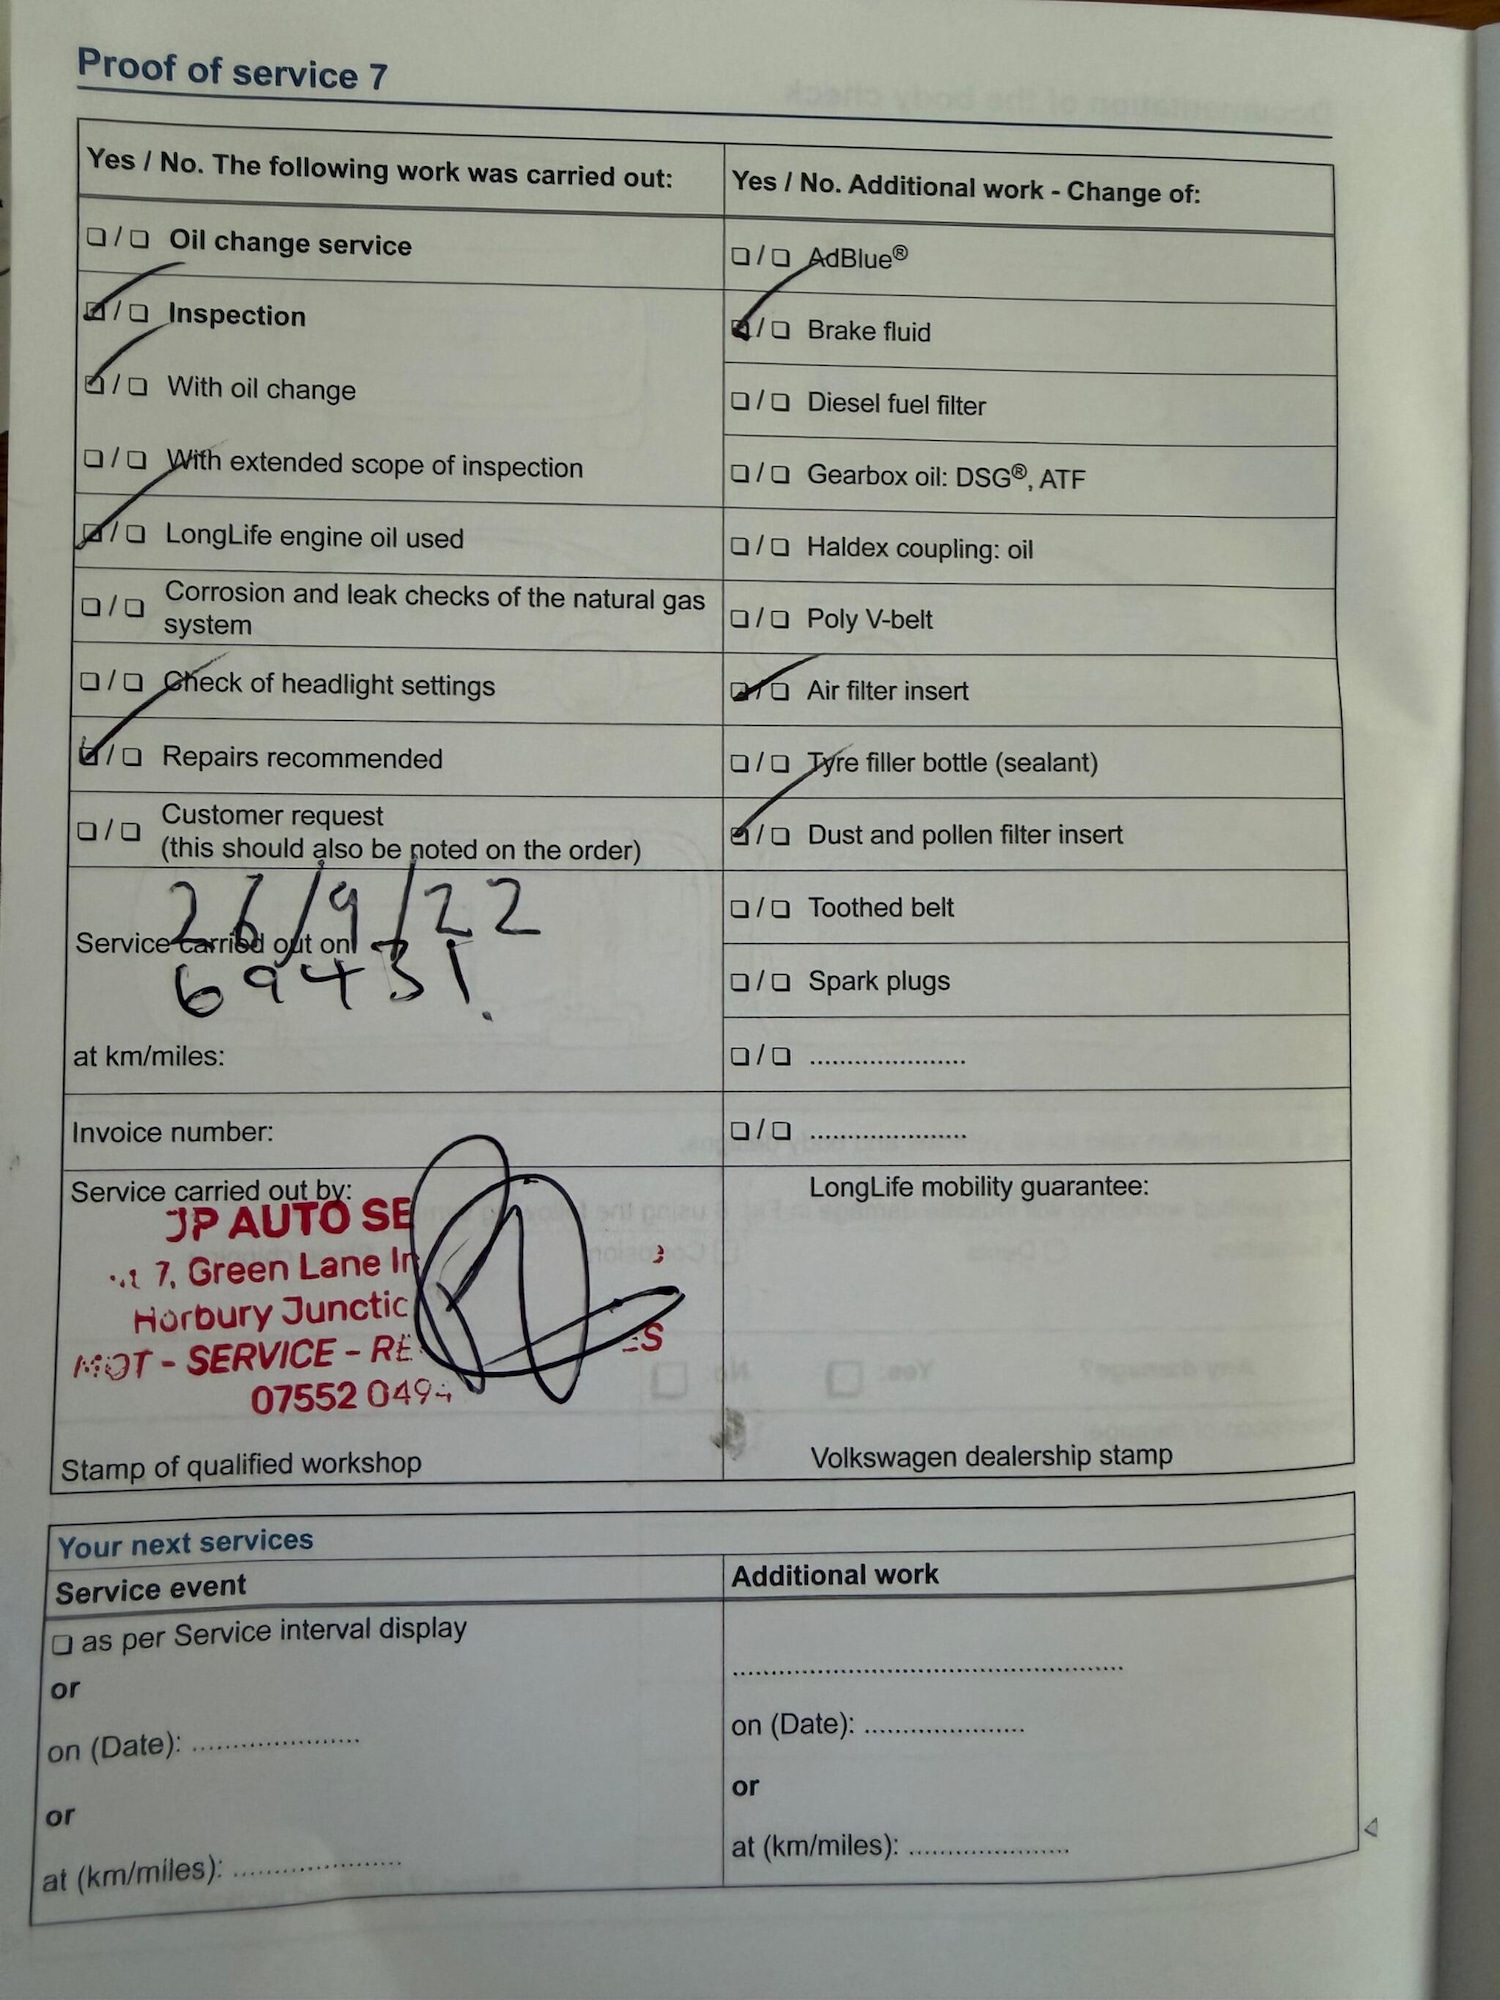 Proof of service 7
Yes / No. The following work was carried out:
❏ / ❏ Oil change service
☑ / ❏ Inspection
☑ / ❏ With oil change
❏ / ❏ With extended scope of inspection
☑ / ❏ LongLife engine oil used
❏ / ❏ Corrosion and leak checks of the natural gas
system
❏ / ❏ Check of headlight settings
☑ / ❏ Repairs recommended
❏ / ❏ Customer request
(this should also be noted on the order)
26/9/22
Service carried out on
69431.
at km/miles:
Invoice number:
Service carried out by:
JP AUTO SE
7, Green Lane In
Horbury Junctio
MOT - SERVICE - RE ES
07552 049
Stamp of qualified workshop
Yes / No. Additional work - Change of:
❏ / ❏ AdBlue®
☑ / ❏ Brake fluid
❏ / ❏ Diesel fuel filter
❏ / ❏ Gearbox oil: DSG®, ATF
❏ / ❏ Haldex coupling: oil
❏ / ❏ Poly V-belt
☑ / ❏ Air filter insert
❏ / ❏ Tyre filler bottle (sealant)
☑ / ❏ Dust and pollen filter insert
❏ / ❏ Toothed belt
❏ / ❏ Spark plugs
❏ / ❏ .....................
❏ / ❏ .....................
LongLife mobility guarantee:
Volkswagen dealership stamp
Your next services
Service event
❏ as per Service interval display
or
on (Date): .....................
or
at (km/miles): .....................
Additional work
.....................
on (Date): .....................
or
at (km/miles): .....................